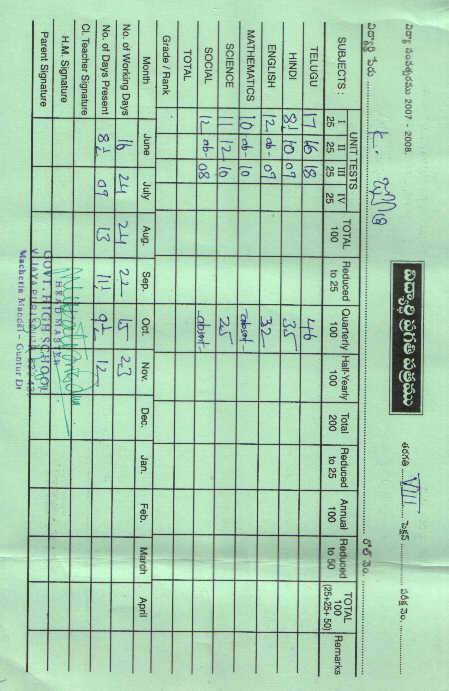 విద్యా సంవత్సరము 2007 - 2008.
విద్యార్థి ప్రగతి పత్రము
తరగతి VIII సెక్షన్ పరీక్ష నం.
విద్యార్థి పేరు K. రోల్ నం.
SUBJECTS : UNIT TESTS I 25 II 25 III 25 IV 25 TOTAL 100 Reduced to 25 Quarterly 100 Half-Yearly 100 Total 200 Reduced to 25 Annual 100 Reduced to 50 TOTAL 100 (25+25+ 50) Remarks
TELUGU 17 16 18 46
HINDI 8½ 10 09 35
ENGLISH 12 ab- 09 32
MATHEMATICS 10 ab- 10 absent-
SCIENCE 11 12- 10 25
SOCIAL 12 ab- 08 absent-
TOTAL
Grade / Rank
Month June July Aug. Sep. Oct. Nov. Dec. Jan. Feb. March April
No. of Working Days 16 24 24 22 15 23
No. of Days Present 8½ 09 13 11½ 9½ 12
Cl. Teacher Signature
H.M. Signature
HEAD MASTER
Parent Signature
GOVT. HIGH SCHOOL
Macherla Mandal - Guntur Dt